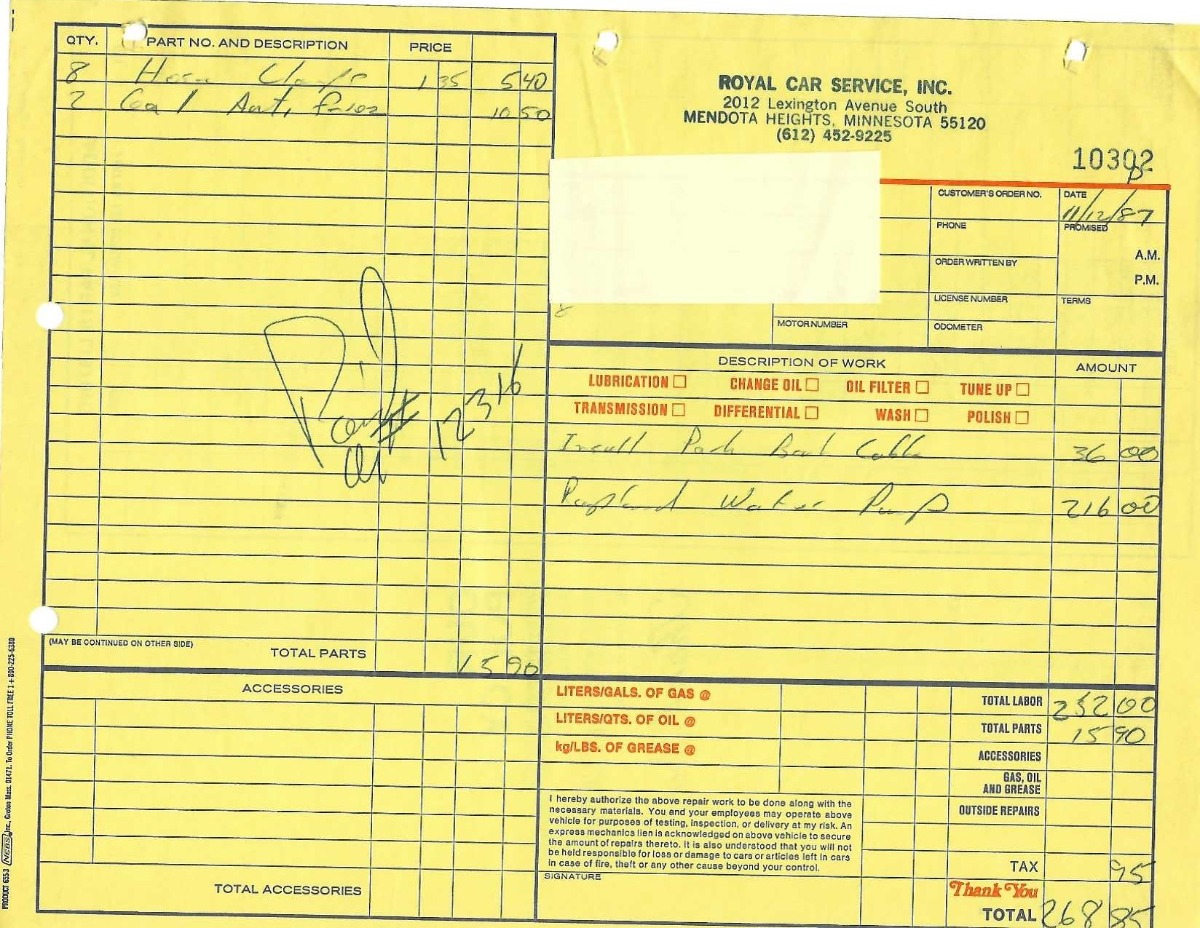 QTY. PART NO. AND DESCRIPTION PRICE
8 Hose Clamps 1 35 5 40
2 Gal Anti freez 10 50
Paid
12316
(MAY BE CONTINUED ON OTHER SIDE)
TOTAL PARTS 15 90
ACCESSORIES
TOTAL ACCESSORIES
PRODUCT 655-3 NEBS Inc., Groton Mass. 01471. To Order PHONE TOLL FREE 1 + 800-225-6380
ROYAL CAR SERVICE, INC.
2012 Lexington Avenue South
MENDOTA HEIGHTS, MINNESOTA 55120
(612) 452-9225
10302
CUSTOMER'S ORDER NO. DATE
11/12/87
PHONE PROMISED
A.M.
ORDER WRITTEN BY
P.M.
LICENSE NUMBER TERMS
MOTOR NUMBER ODOMETER
DESCRIPTION OF WORK AMOUNT
LUBRICATION CHANGE OIL OIL FILTER TUNE UP
TRANSMISSION DIFFERENTIAL WASH POLISH
Cable 36 00
Water Pump 216 00
LITERS/GALS. OF GAS @ TOTAL LABOR 252 00
LITERS/QTS. OF OIL @ TOTAL PARTS 15 90
kg/LBS. OF GREASE @ ACCESSORIES
GAS, OIL
AND GREASE
OUTSIDE REPAIRS
I hereby authorize the above repair work to be done along with the
necessary materials. You and your employees may operate above
vehicle for purposes of testing, inspection, or delivery at my risk. An
express mechanics lien is acknowledged on above vehicle to secure
the amount of repairs thereto. It is also understood that you will not
be held responsible for loss or damage to cars or articles left in cars
in case of fire, theft or any other cause beyond your control.
SIGNATURE
TAX 95
Thank You
TOTAL 268 85